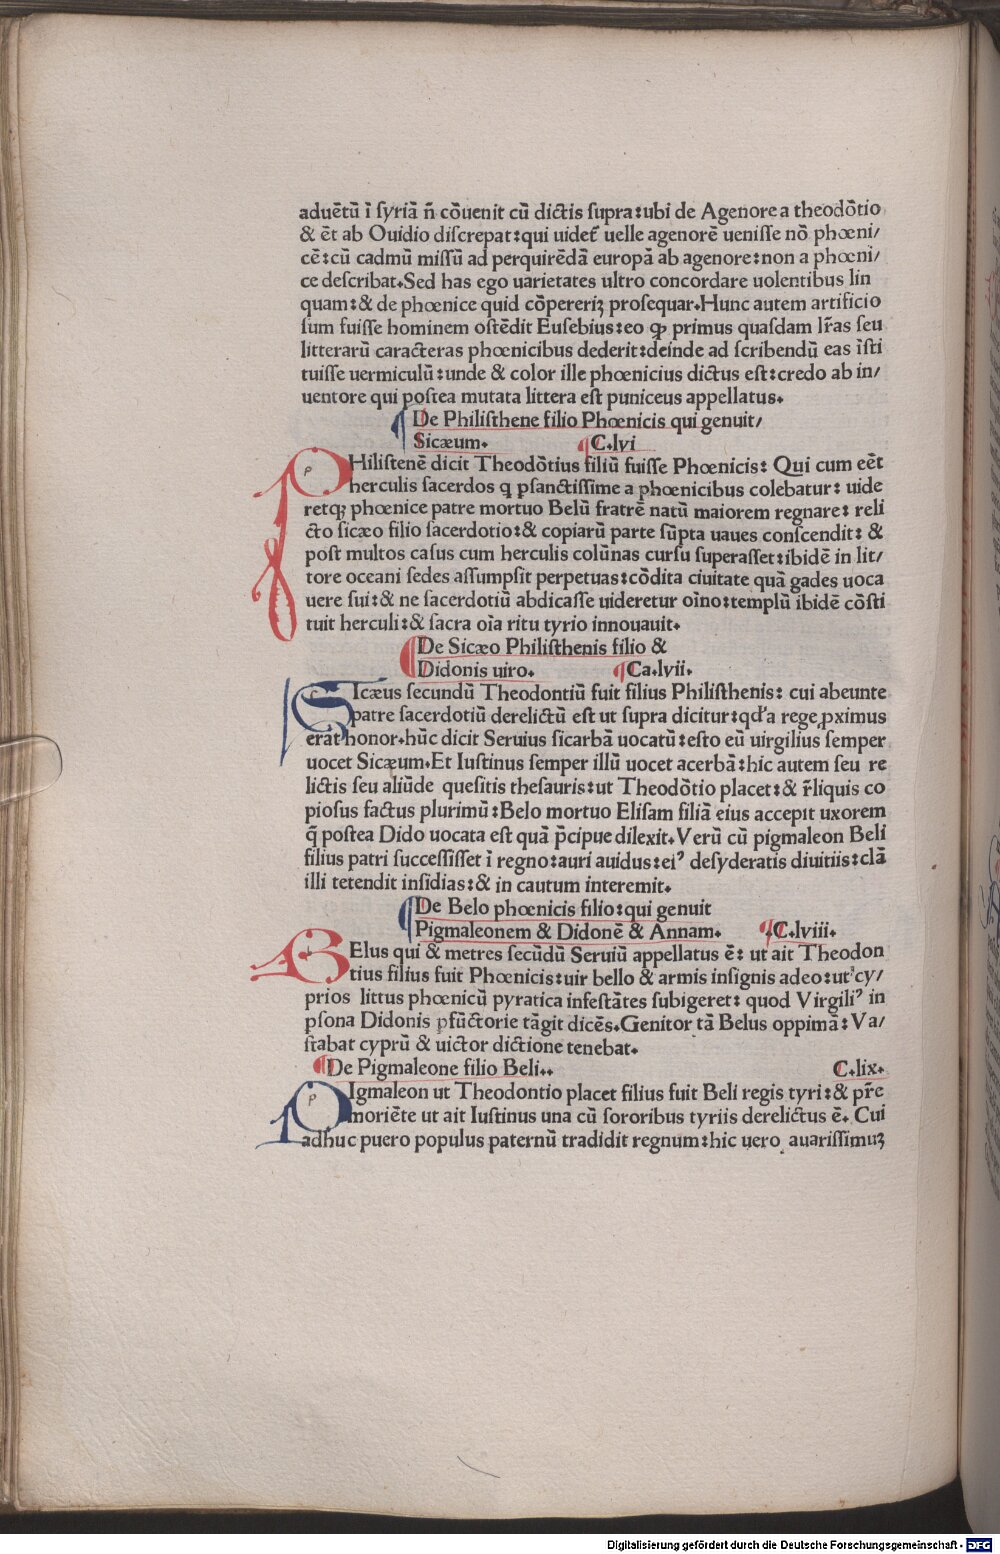 aduētū ī ſyriā n̄ cōuenit cū dictis ſupra:ubi de Agenore a theodōtio
& ēt ab Ouidio diſcrepat:qui uideť uelle agenorē ueniſſe nō phœni/
cē:cū cadmū miſſū ad perquirēdā europā ab agenore:non a phœni/
ce deſcribat.Sed has ego uarietates ultro concordare uolentibus lin
quam:& de phœnice quid cōpererìꝫ proſequar.Hunc autem artificio
ſum fuiſſe hominem oſtēdit Euſebius:eo ꝙ primus quaſdam lr̄as ſeu
litterarū caracteras phœnicibus dederit:deinde ad ſcribendū eas īſti
tuiſſe uermiculū:unde & color ille phœnicius dictus eſt:credo ab in/
uentore qui poſtea mutata littera eſt puniceus appellatus.
¶De Philiſthene filio Phœnicis qui genuit/
Sicæum. ¶C.lvi
PHiliſtenē dicit Theodōtius filiū fuiſſe Phœnicis: Qui cum eēt
herculis ſacerdos q pſanctiſſime a phœnicibus colebatur: uide
retqꝫ phœnice patre mortuo Belū fratrē natū maiorem regnare: reli
cto ſicæo filio ſacerdotio:& copiarū parte ſūpta uaues conſcendit: &
poſt multos caſus cum herculis colūnas curſu ſuperaſſet:ibidē in lit/
tore oceani ſedes aſſumpſit perpetuas:cōdita ciuitate quā gades uoca
uere ſui:& ne ſacerdotiū abdicaſſe uideretur oīno:templū ibidē cōſti
tuit herculi:& ſacra oīa ritu tyrio innouauit.
¶De Sicæo Philiſthenis filio &
Didonis uiro. ¶Ca.lvii.
SIcæus ſecundū Theodontiū fuit filius Philiſthenis: cui abeunte
patre ſacerdotiū derelictū eſt ut ſupra dicitur:qđ a rege ꝓximus
erat honor.hūc dicit Seruius ſicarbā uocatū:eſto eū uirgilius ſemper
uocet Sicæum.Et Iuſtinus ſemper illū uocet acerbā:hic autem ſeu re
lictis ſeu aliūde queſitis theſauris:ut Theodōtio placet:& r̄liquis co
pioſus factus plurimū:Belo mortuo Eliſam filiā eius accepit uxorem
q̄ poſtea Dido uocata eſt quā p̄cipue dilexit.Verū cū pigmaleon Beli
filius patri ſucceſſiſſet ī regno:auri auidus:ei⁹ deſyderatis diuitiis:clā
illi tetendit inſidias:& in cautum interemit.
¶De Belo phœnicis filio:qui genuit
Pigmaleonem & Didonē & Annam. ¶.C.lviii.
BElus qui & metres ſecūdū Seruiū appellatus ē: ut ait Theodon
tius filius fuit Phœnicis:uir bello & armis inſignis adeo:ut cy/
prios littus phœnicū pyratica infeſtātes ſubigeret: quod Virgili⁹ in
pſona Didonis ꝑfūctorie tāgit dicēs.Genitor tā Belus oppimā:Va/
ſtabat cyprū & uictor dictione tenebat.
¶De Pigmaleone filio Beli.. C.lix.
PIgmaleon ut Theodontio placet filius fuit Beli regis tyri:& pr̄e
moriēte ut ait Iuſtinus una cū ſororibus tyriis derelictus ē. Cui
adhuc puero populus paternū tradidit regnum:hic uero auariſſimuꝫ
Digitalisierung gefördert durch die Deutsche Forschungsgemeinschaft - DFG